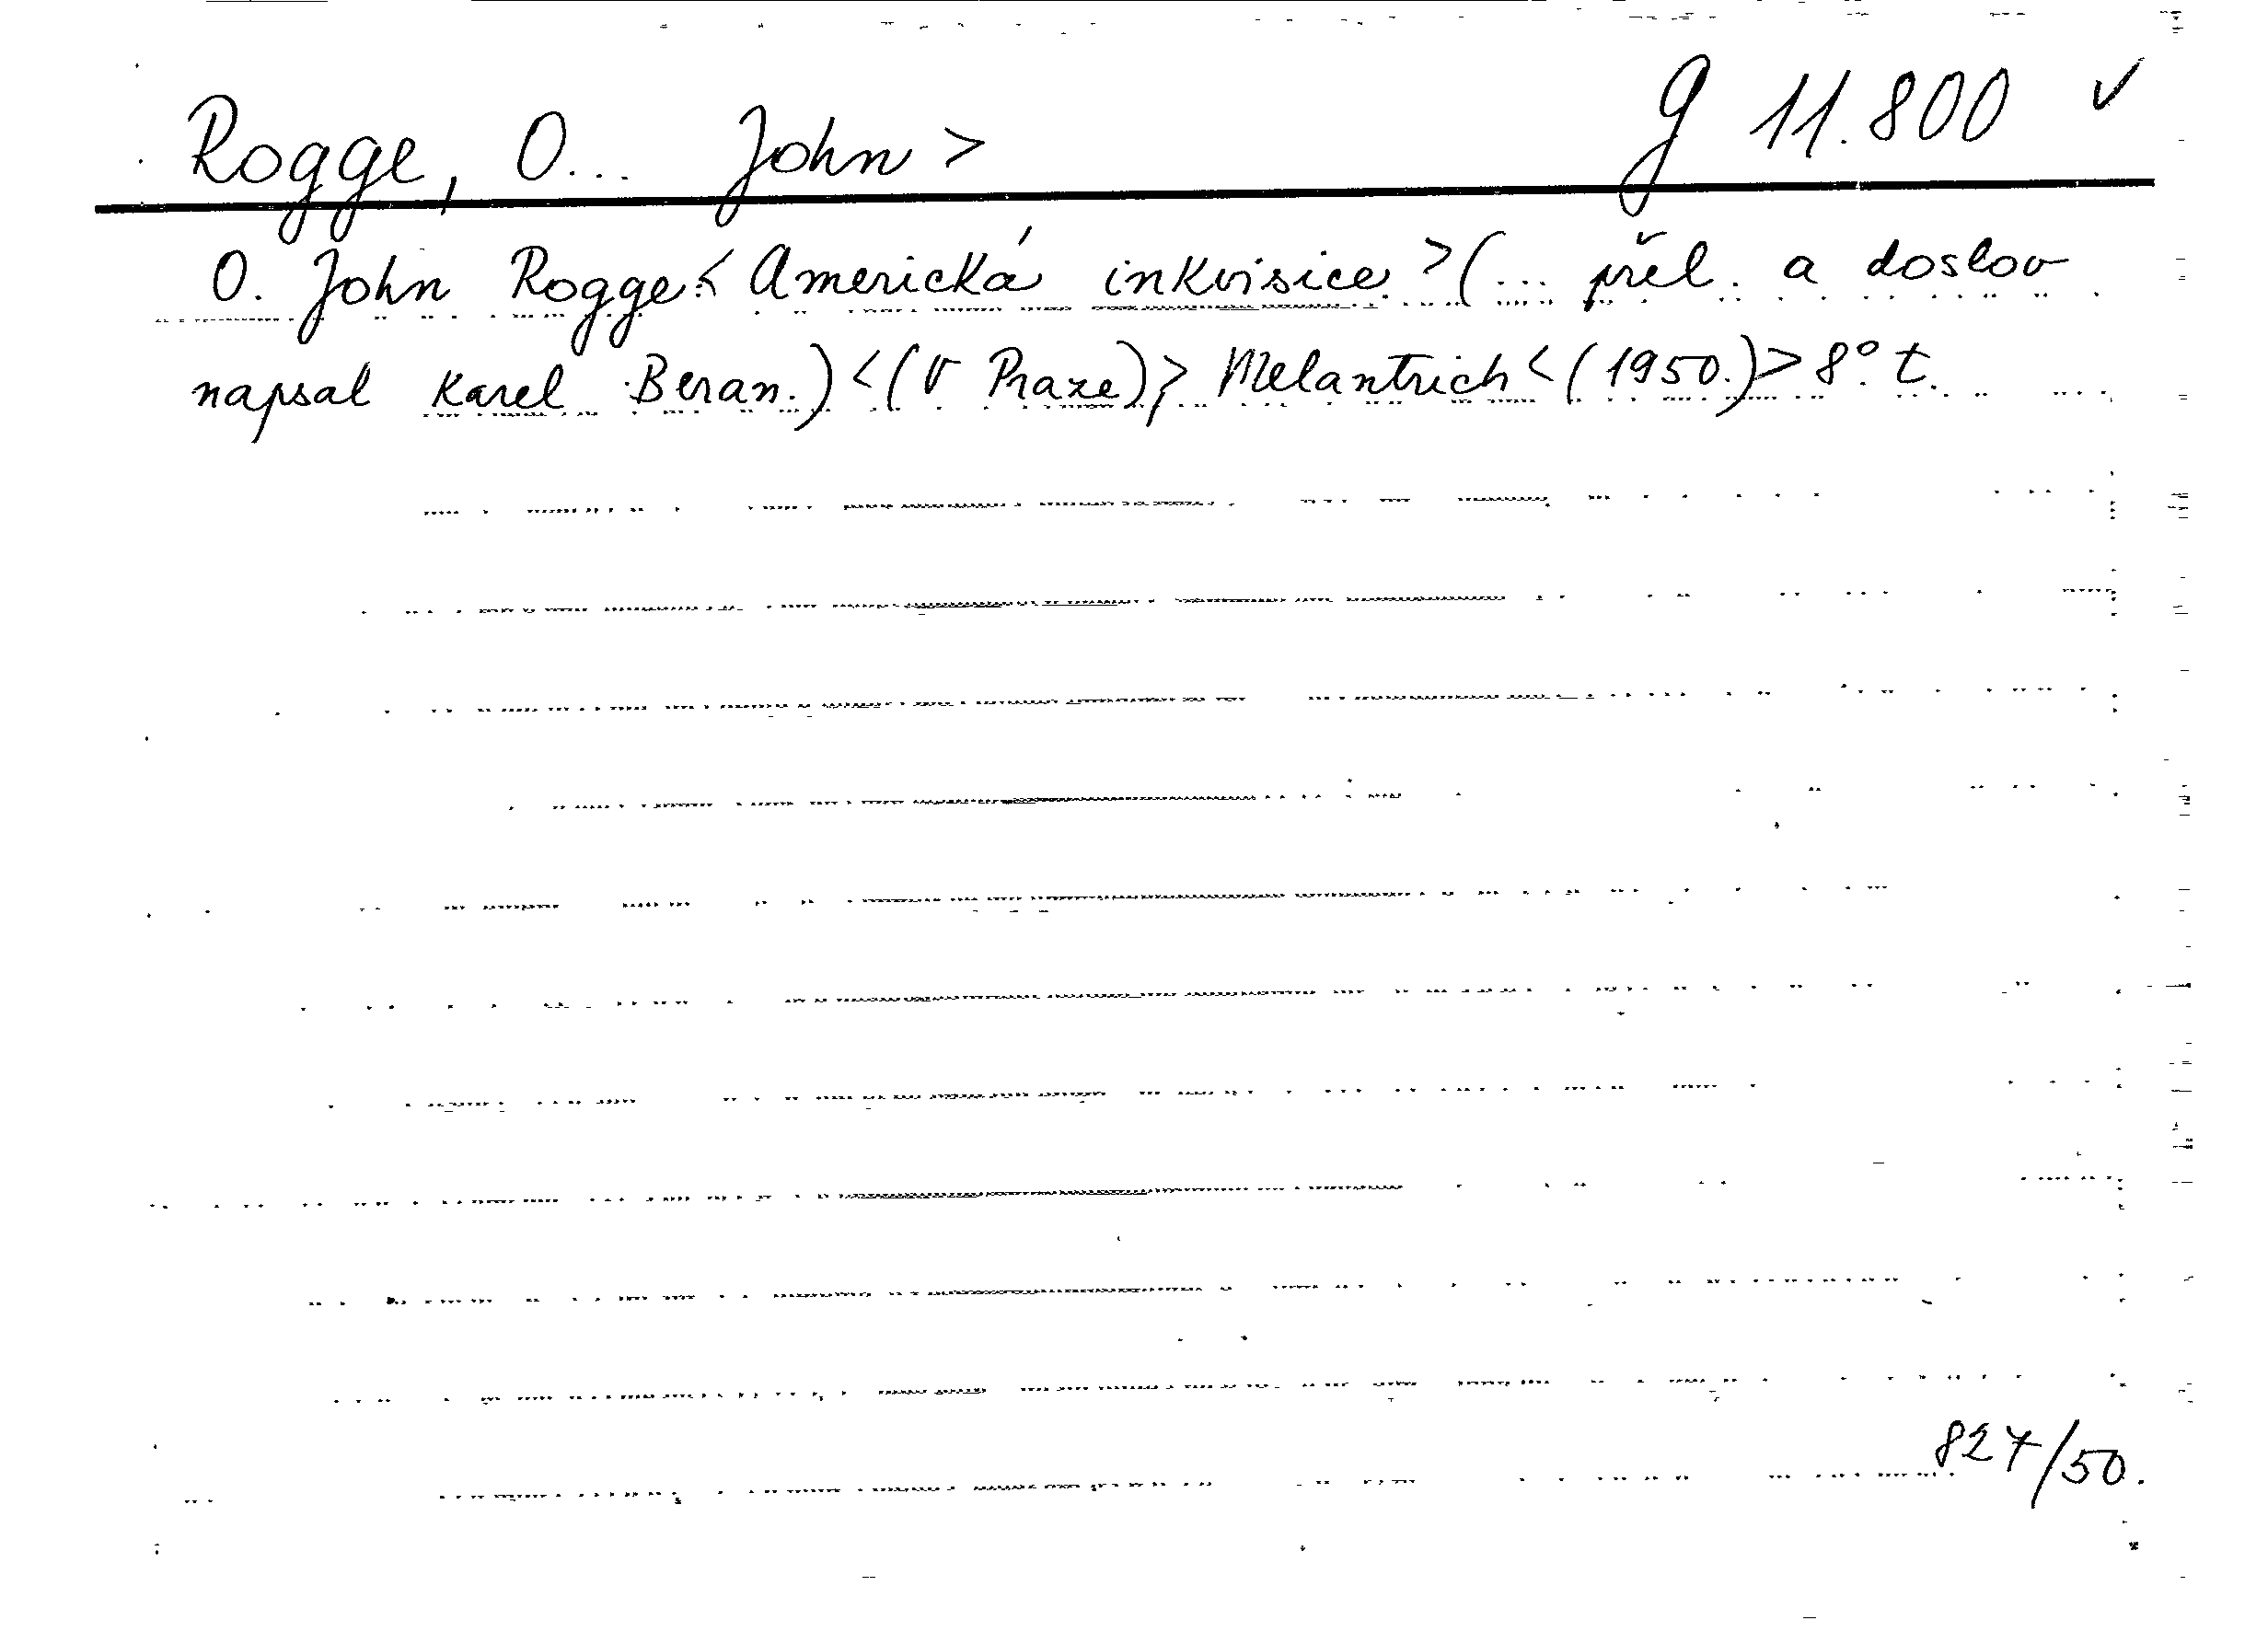 Rogge, O... John > g 11.800 ✓
O. John Rogge:< Americká inkvisice >(... přel. a doslov
napsal Karel Beran.) <(V Praze)> Melantrich <(1950.)> 8°. t.
827/50.